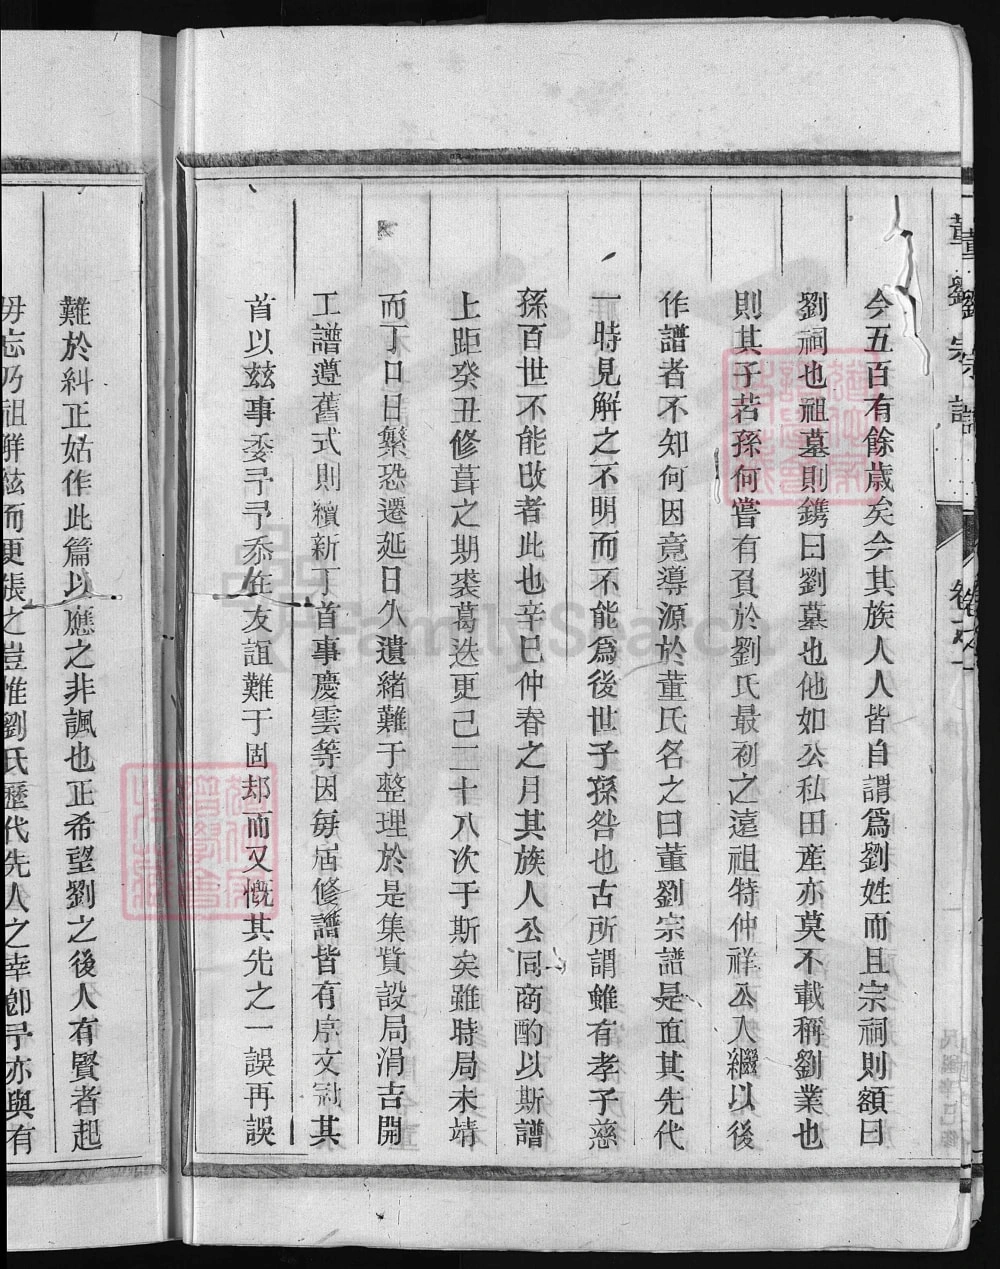 董劉宗譜 卷之一
今五百有餘歲矣今其族人人皆自謂爲劉姓而且宗祠則額曰
劉祠也祖墓則鐫曰劉墓也他如公私田產亦莫不載稱劉業也
則其子若孫何嘗有負於劉氏最初之遠祖特仲祥公入繼以後
作譜者不知何因竟導源於董氏名之曰董劉宗譜是直其先代
一時見解之不明而不能爲後世子孫咎也古所謂雖有孝子慈
孫百世不能改者此也辛巳仲春之月其族人公同商酌以斯譜
上距癸丑修葺之期裘葛迭更已二十八次于斯矣雖時局未靖
而丁口日繁恐遷延日久遺緒難于整理於是集貲設局涓吉開
工譜遵舊式則續新丁首事慶雲等因每屆修譜皆有序文冠其
首以茲事委予予忝在友誼難于固却而又慨其先之一誤再誤
難於糾正姑作此篇以應之非諷也正希望劉之後人有賢者起
毋忘乃祖鮮茲而更張之豈惟劉氏歷代先人之幸卽予亦與有
FamilySearch